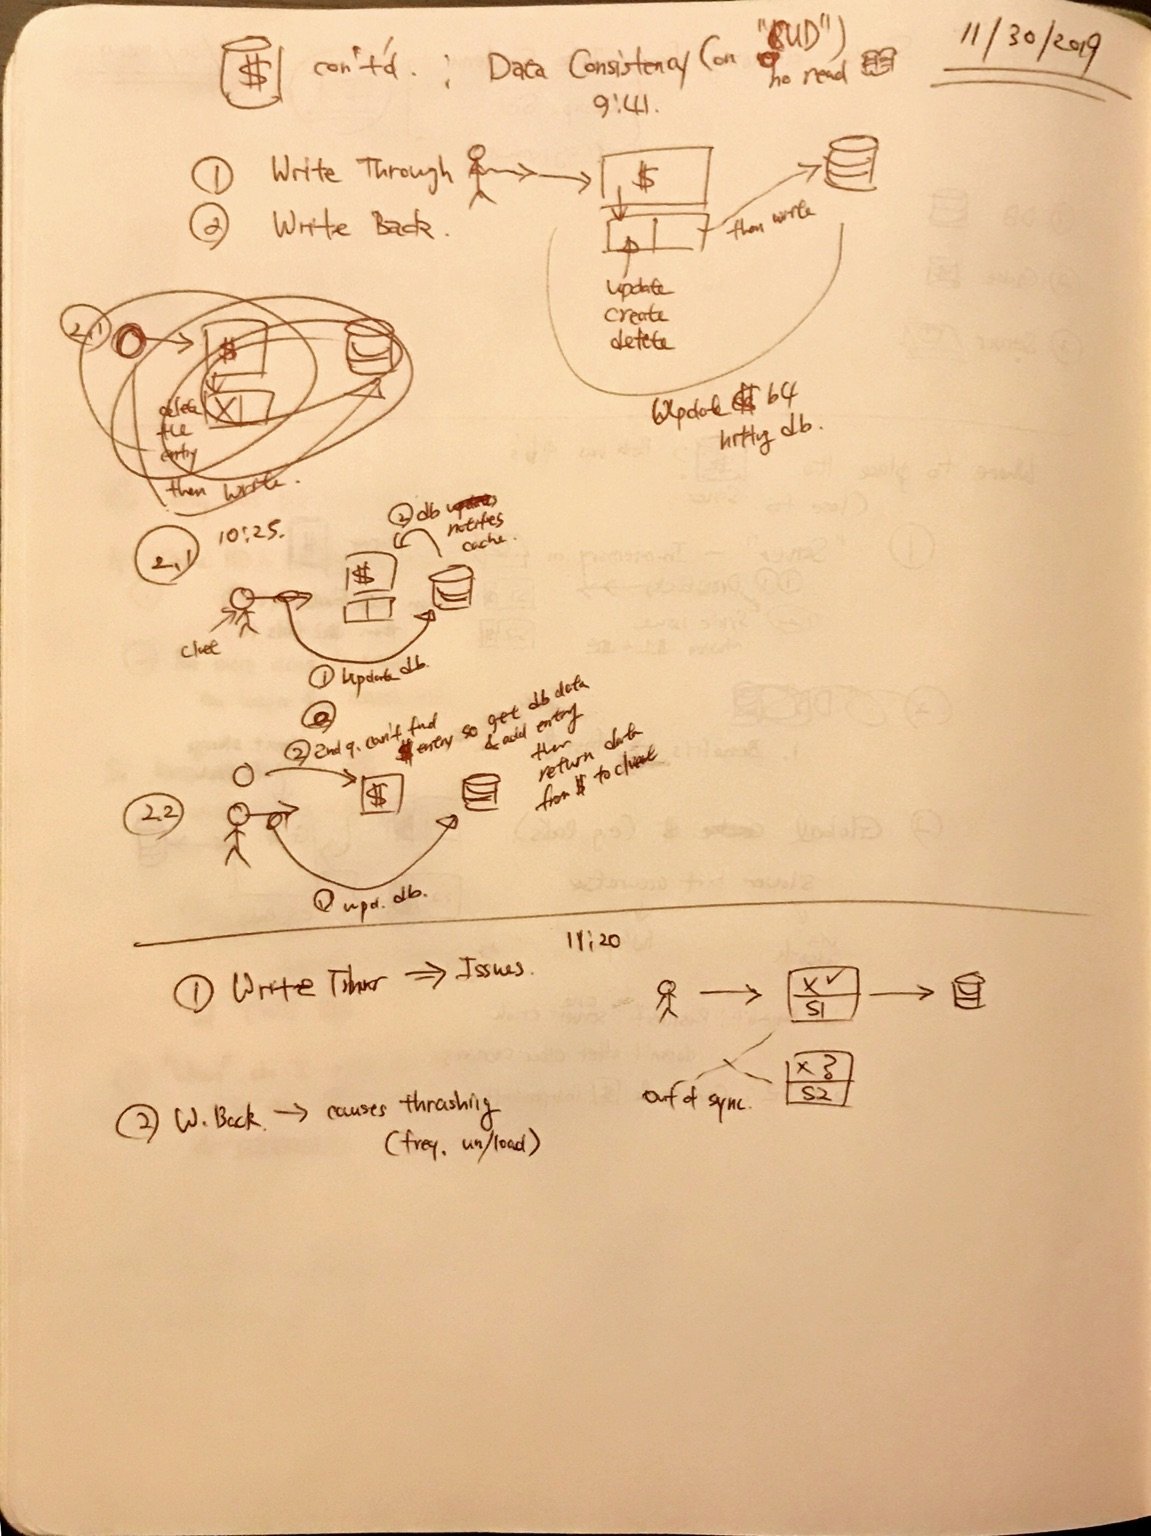 $ con't'd. : Data Consistency (on "CUD")
no read
11/30/2019
9:41.
① Write Through
② Write Back.
$
then write
update
create
delete
Update $ b4
hitting db.
2.1
$
X
delete
the
entry
then write.
2.1
10:25.
② db
notifies
cache.
$
① Update db.
②
② 2nd q. can't find
$ entry so get db data
& add entry
then
return data
from $ to client
2.2
$
① upd. db.
11:20
① Write Thru ⇒ Issues.
X ✓
S1
X ?
S2
out of sync.
② W. Back → causes thrashing
(freq. un/load)